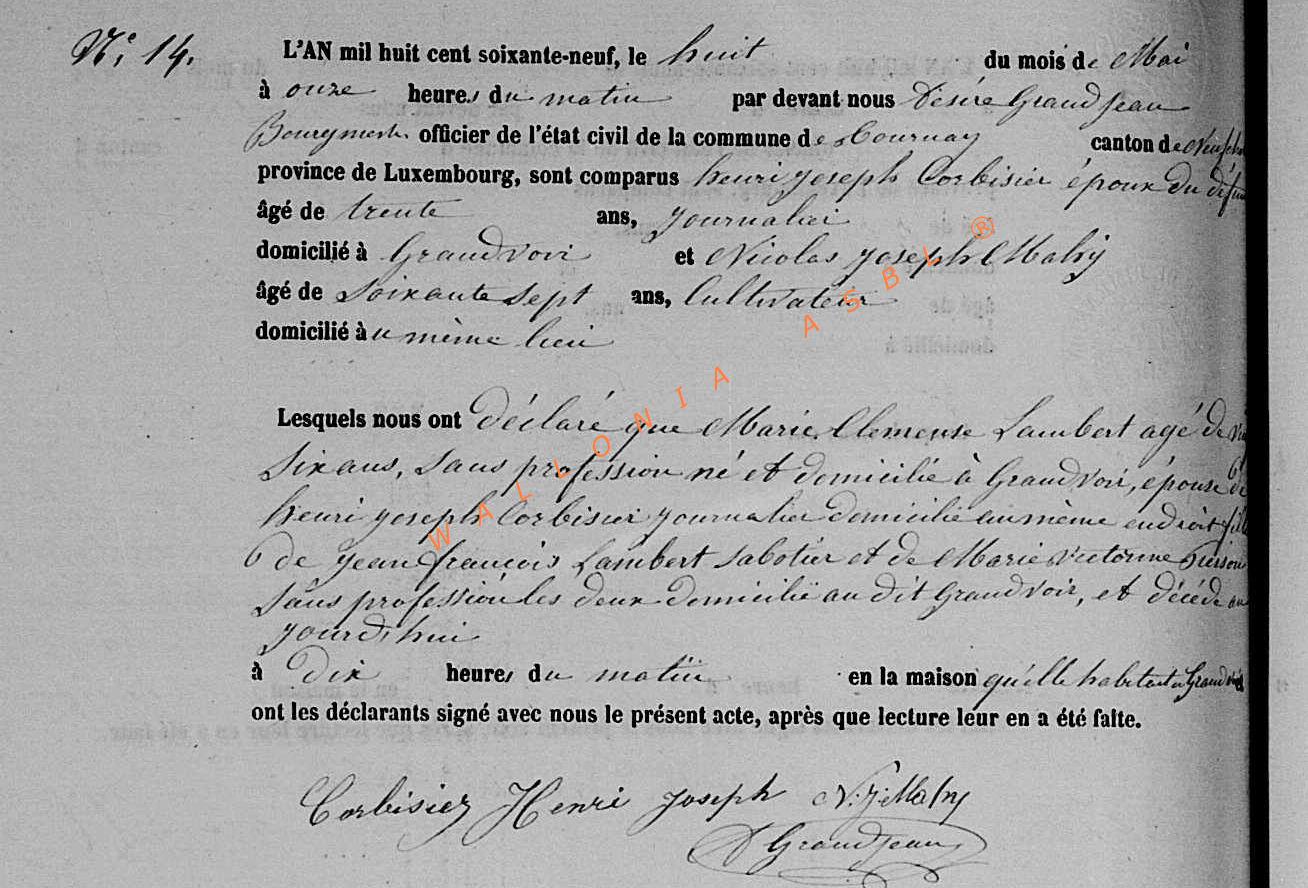 N° 14.
L'AN mil huit cent soixante-neuf, le huit du mois de Mai
à onze heures du matin par devant nous Désiré Grandjean
Bourgmestre officier de l'état civil de la commune de Tournay canton de Neufchâ
province de Luxembourg, sont comparus henri joseph Corbisier époux du défun
âgé de trente ans, journalier
domicilié à Grandvoir et Nicolas joseph Mahy
âgé de Soixante Sept ans, Cultivateur
domicilié au même lieu
Lesquels nous ont déclaré que Marie Clemense Lambert agé de
Six ans, sans profession né et domicilié à Grandvoir, épouse de
henri joseph Corbisier journalier domicilié au même endroit fille
de jean françois Lambert sabotier et de Marie victorine
sans profession les deux domicilié au dit Grandvoir, et décédé au
jourd'hui
à Dix heures du matin en la maison qu'elle habitait à Grandvoir
ont les déclarants signé avec nous le présent acte, après que lecture leur en a été faite.
Corbisier Henri Joseph N. j. Mahy
D Grandjean
WALLONIA ASBL ®